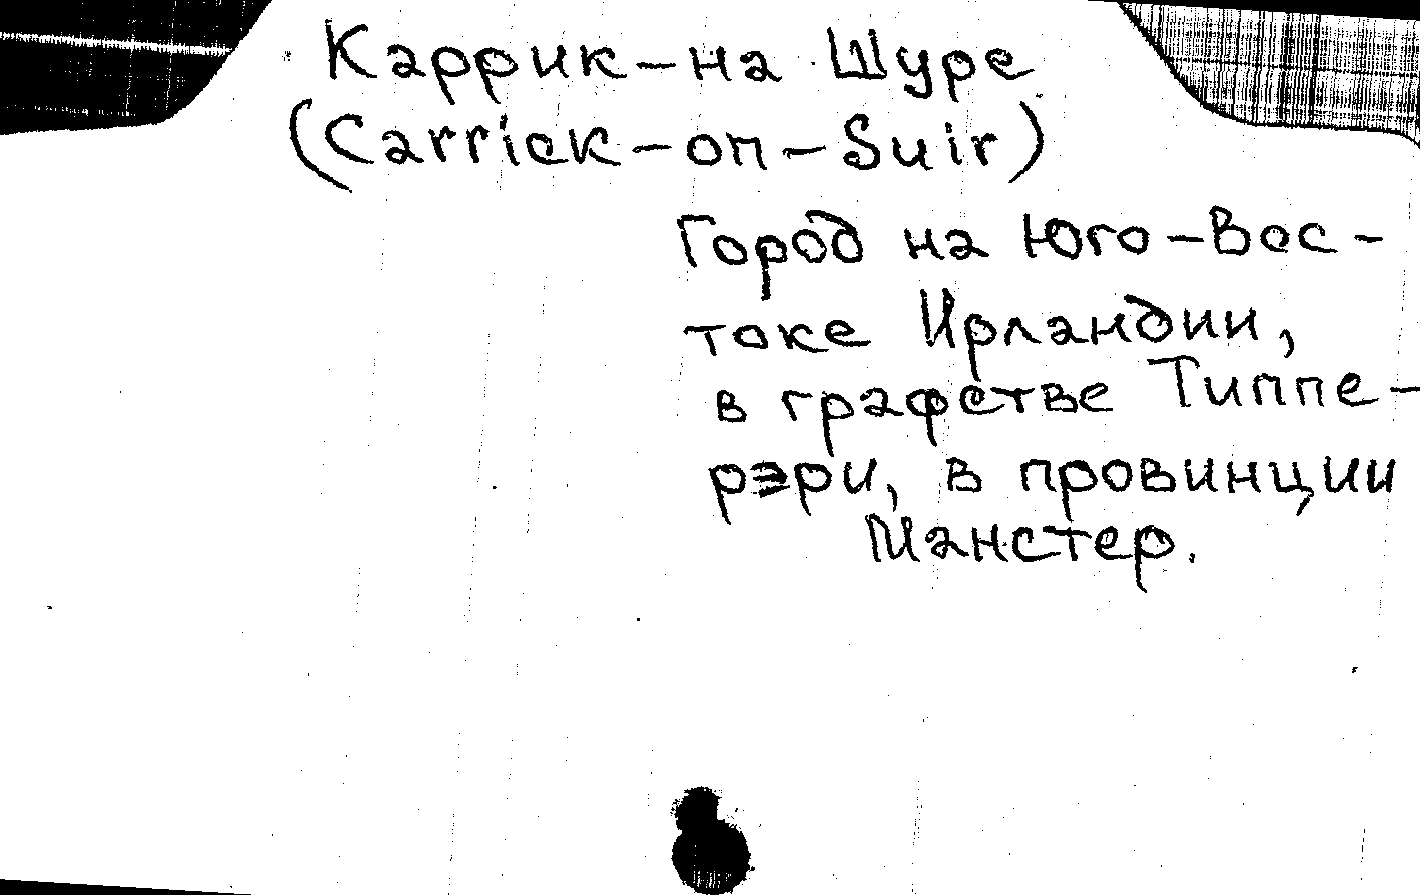 Каррик-на Шуре
(Carrick-on-Suir)
Город на Юго-Вос-
токе Ирландии,
в графстве Типпе-
рэри, в провинции
Манстер.